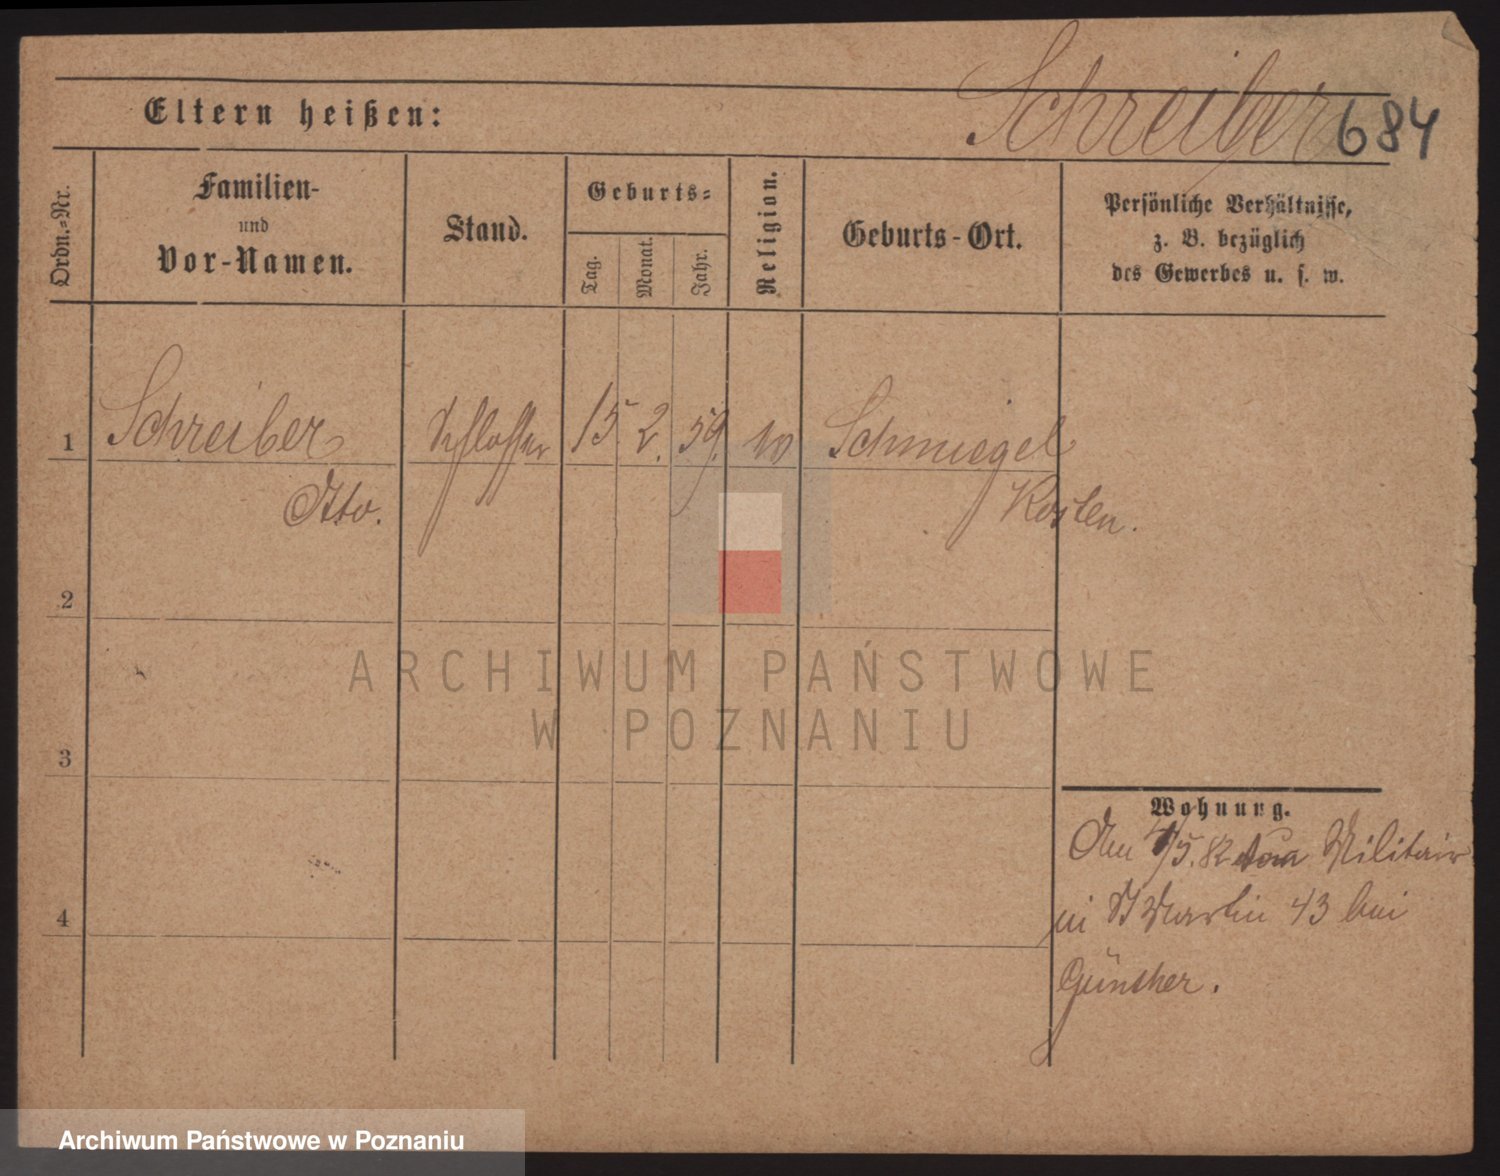 Schreiber 684
Eltern heißen:
Ordn.-Nr.
Familien-
und
Vor-Namen.
Stand.
Geburts-
Tag.
Monat.
Jahr.
Religion.
Geburts-Ort.
Persönliche Verhältnisse,
z. B. bezüglich
des Gewerbes u. s. w.
1 Schreiber Schlosser 15. 2. 59. Schmiegel
Otto. Kosten.
2
ARCHIWUM PAŃSTWOWE
W POZNANIU
3
Wohnung.
/5. 82 Militair
in St Martin 43 bei
4
Günther.
Archiwum Państwowe w Poznaniu